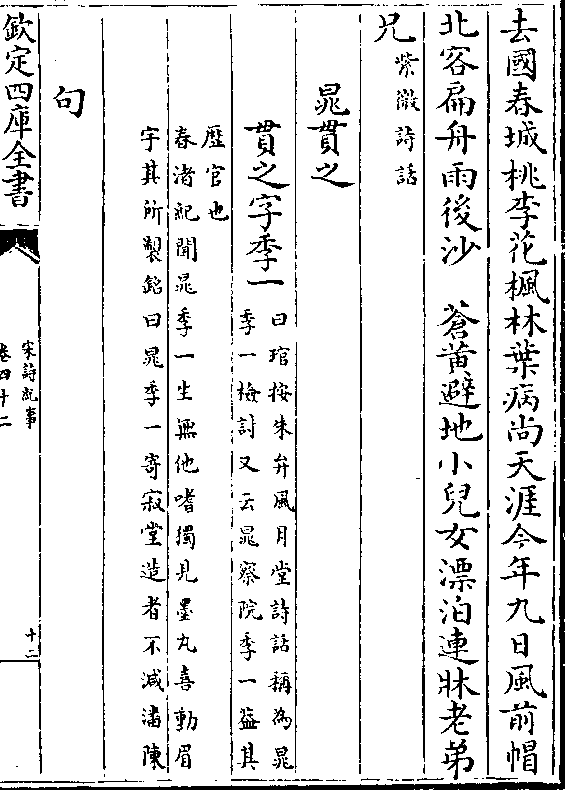 去國春城桃李花楓林葉病尚天涯今年九日風前帽
北客扁舟雨後沙　蒼黄避地小兒女漂泊連牀老弟
兄紫微詩話
晁貫之
貫之字季一
曰琯按朱弁風月堂詩話稱為晁
季一檢討又云晁察院季一葢其
歴官也
春渚紀聞晁季一生無他嗜獨見墨丸喜動眉
宇其所製銘曰晁季一寄寂堂造者不減潘陳
句
欽定四庫全書
宋詩紀事
卷四十二
十二